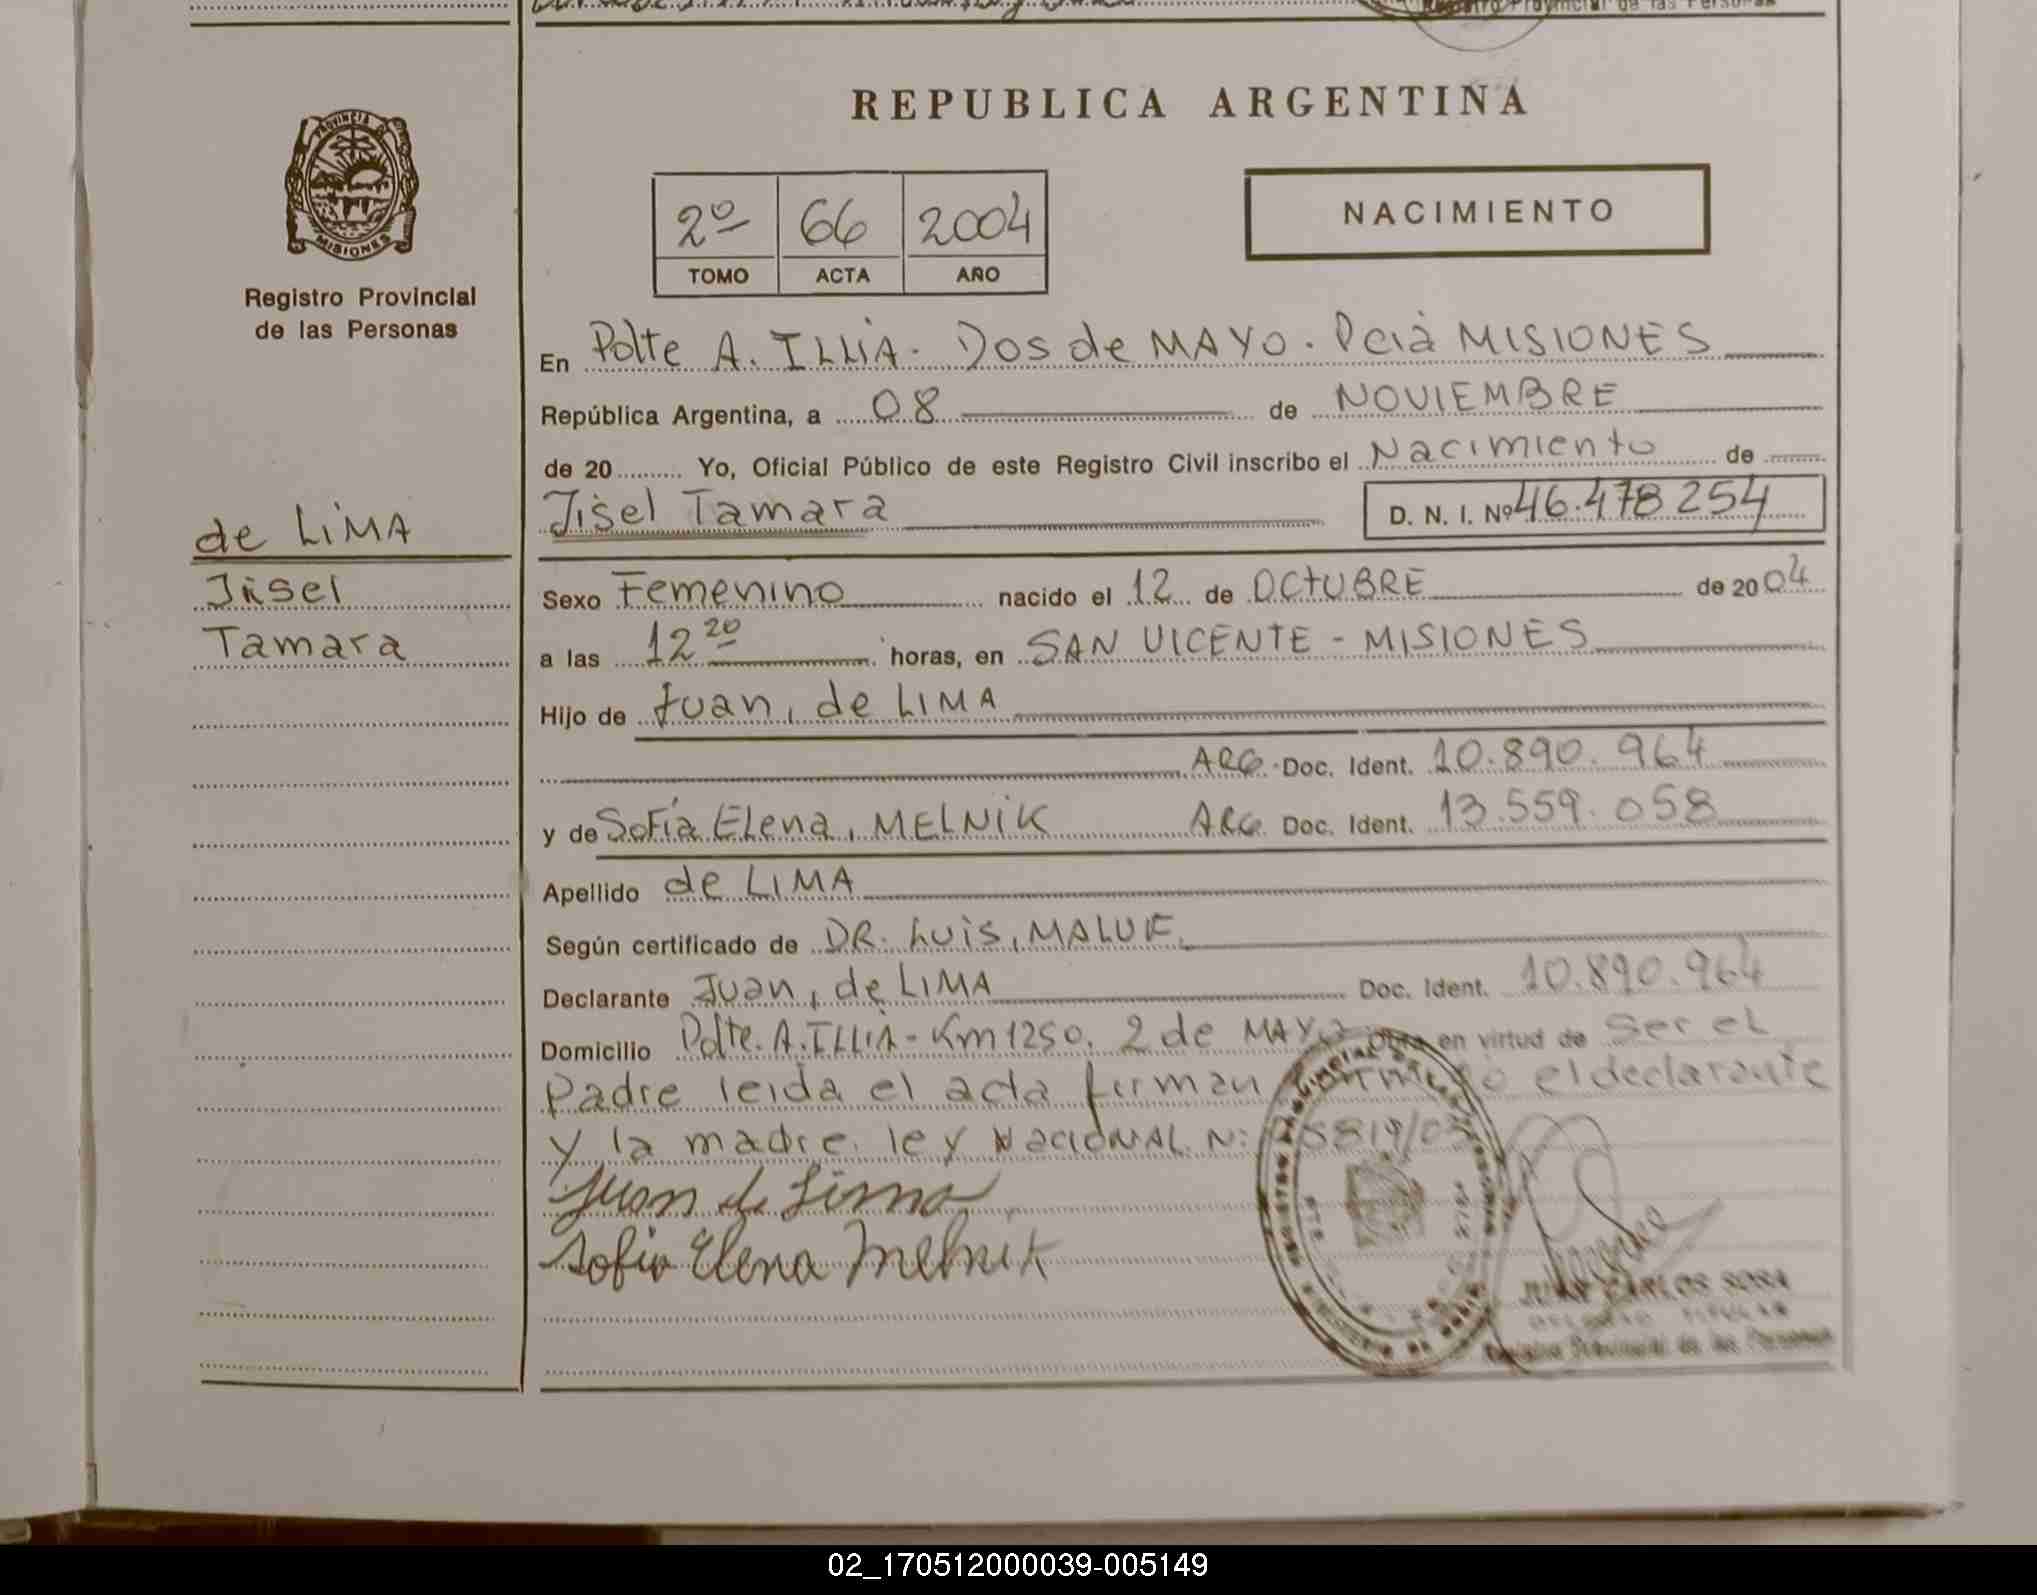 REPUBLICA ARGENTINA
PROVINCIA D
MISIONES
Registro Provincial
de las Personas
2º 66 2004
TOMO ACTA AÑO
NACIMIENTO
de LiMA
Jisel
Tamara
En Pdte A. ILLIA - Dos de MAYO - Pcia MISIONES
República Argentina, a 08 de NOVIEMBRE
de 20 Yo, Oficial Público de este Registro Civil inscribo el Nacimiento de
Jisel Tamara D. N. I. Nº 46.478.254
Sexo Femenino nacido el 12 de OCTUBRE de 2004
a las 12 20 horas, en SAN VICENTE - MISIONES
Hijo de Juan, de LIMA
ARG. Doc. Ident. 10.890.964
y de Sofía Elena, MELNIK ARG. Doc. Ident. 13.559.058
Apellido de LIMA
Según certificado de DR. Luis, MALUF.
Declarante Juan, de LIMA Doc. Ident. 10.890.964
Domicilio Pdte. A. ILLIA - Km 1250. 2 de MAYO en virtud de Ser el
Padre leida el acta firman el declarante
y la madre. ley NacioNAL N: 25819/03
Juan de Lima
Sofia Elena Melnik
JUAN CARLOS SOSA
DELEGADO TITULAR
Registro Provincial de las Personas
02_170512000039-005149